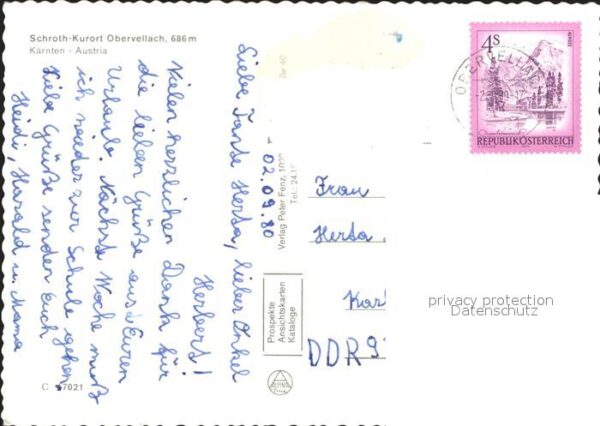 Schroth-Kurort Obervellach, 686 m
Kärnten - Austria
Liebe Tante Herta, lieber Onkel
Herbert!
Vielen herzlichen Dank für
die lieben Grüße aus Euren
Urlaub. Nächste Woche muß
ich wieder zur Schule gehen
Liebe Grüße senden Euch
Heidi, Harald u. Mama
C 7021
02.09.80
Verlag Peter Fenz,
Tel. 24
Prospekte
Ansichtskarten
Kataloge
4S
ALMSEE
REPUBLIK ÖSTERREICH
OBERVELLACH
Frau
Herta
Kar
DDR 9
privacy protection
Datenschutz